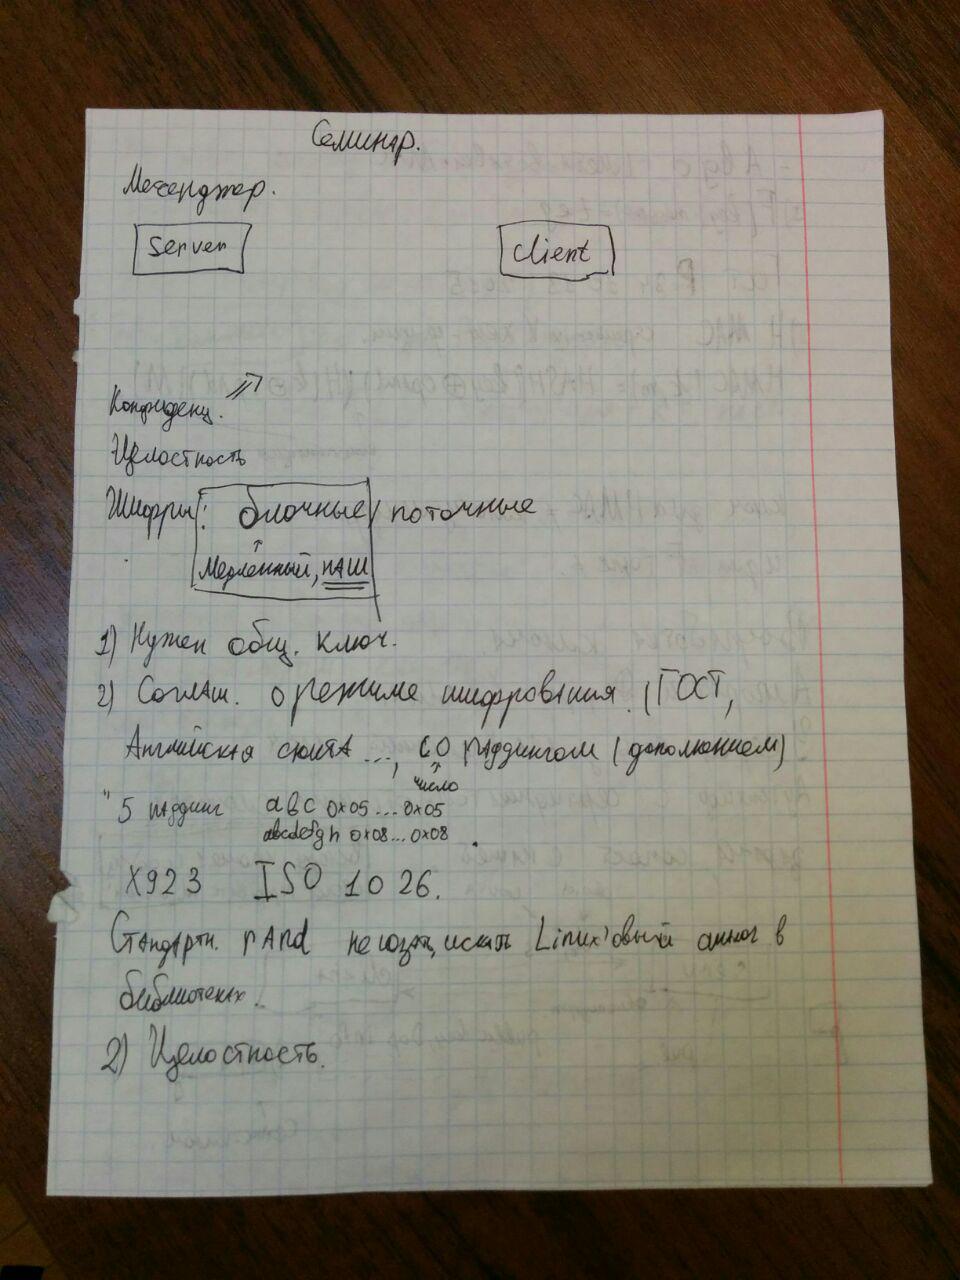 Семинар.
Месенджер.
Server
Client
Конфиденц.
Целостность
Шифры: блочные / поточные
Медленный, наш
1) Нужен общ. ключ.
2) Соглаш. о режиме шифрования. (ГОСТ,
Английская сюита ..., со паддингом (дополнением)
число
"5 паддинг abc 0x05 ... 0x05
abcdefgh 0x08 ... 0x08
X923 ISO 10 26.
Стандартн. rand не юзать, искать Linux'овый аналог в
библиотеках.
2) Целостность.